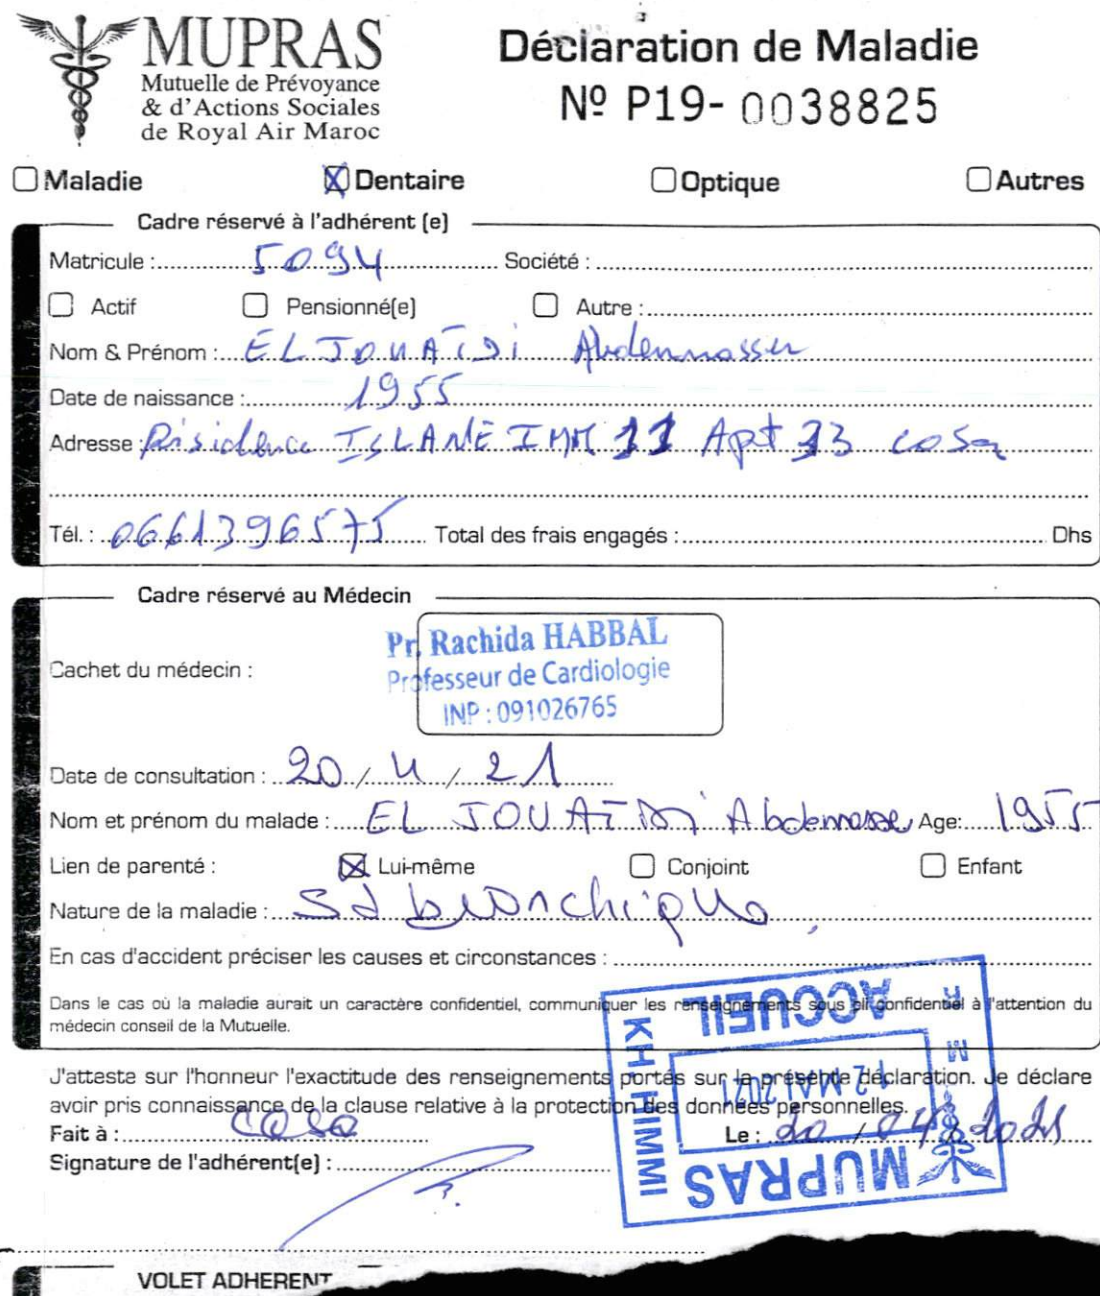 MUPRAS
Mutuelle de Prévoyance
& d'Actions Sociales
de Royal Air Maroc
Déclaration de Maladie
Nº P19- 0038825
Maladie Dentaire Optique Autres
Cadre réservé à l'adhérent (e)
Matricule : 5094 Société :
Actif Pensionné(e) Autre :
Nom & Prénom : EL JOUAÏDI Abdennasser
Date de naissance : 1955
Adresse : Résidence ISLANE IMM 11 Apt 33 casa
Tél. : 0661396575 Total des frais engagés : Dhs
Cadre réservé au Médecin
Pr. Rachida HABBAL
Professeur de Cardiologie
INP : 091026765
Cachet du médecin :
Date de consultation : 20 / 4 / 21
Nom et prénom du malade : EL JOUAÏDI Abdennasse Age: 1955
Lien de parenté : Lui-même Conjoint Enfant
Nature de la maladie : Sd bronchique
En cas d'accident préciser les causes et circonstances :
Dans le cas où la maladie aurait un caractère confidentiel, communiquer les renseignements sous pli confidentiel à l'attention du
médecin conseil de la Mutuelle.
J'atteste sur l'honneur l'exactitude des renseignements portés sur la présente déclaration. Je déclare
avoir pris connaissance de la clause relative à la protection des données personnelles.
Fait à : casa Le : 20 / 04 / 2021
Signature de l'adhérent(e) :
MUPRAS
12 MAI 2021
ACCUEIL
KH HIMMI
VOLET ADHERENT